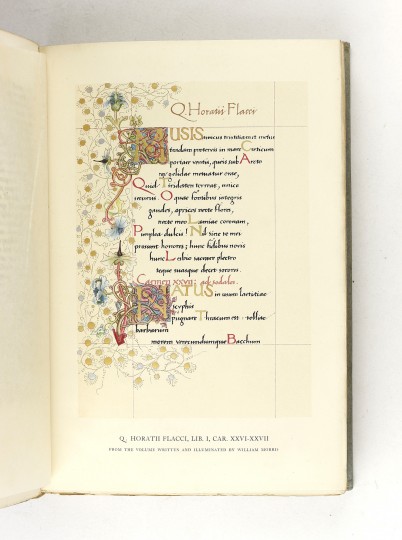 Q. Horatii Flacci
MUSIS amicus tristitiam et metus
tradam protervis in mare Creticum
portare ventis, quis sub Arcto
rex gelidae metuatur orae,
Quid Tiridaten terreat, unice
securus. O quae fontibus integris
gaudes, apricos necte flores,
necte meo Lamiae coronam,
Pimplea dulcis! Nil sine te mei
prosunt honores; hunc fidibus novis
hunc Lesbio sacrare plectro
teque tuasque decet sorores.
Carmen XXVII ad sodales.
NATUS in usum laetitiae
scyphis
pugnare Thracum est: tollite
barbarum
morem verecundumque Bacchum
Q. HORATII FLACCI, LIB. I, CAR. XXVI-XXVII
FROM THE VOLUME WRITTEN AND ILLUMINATED BY WILLIAM MORRIS